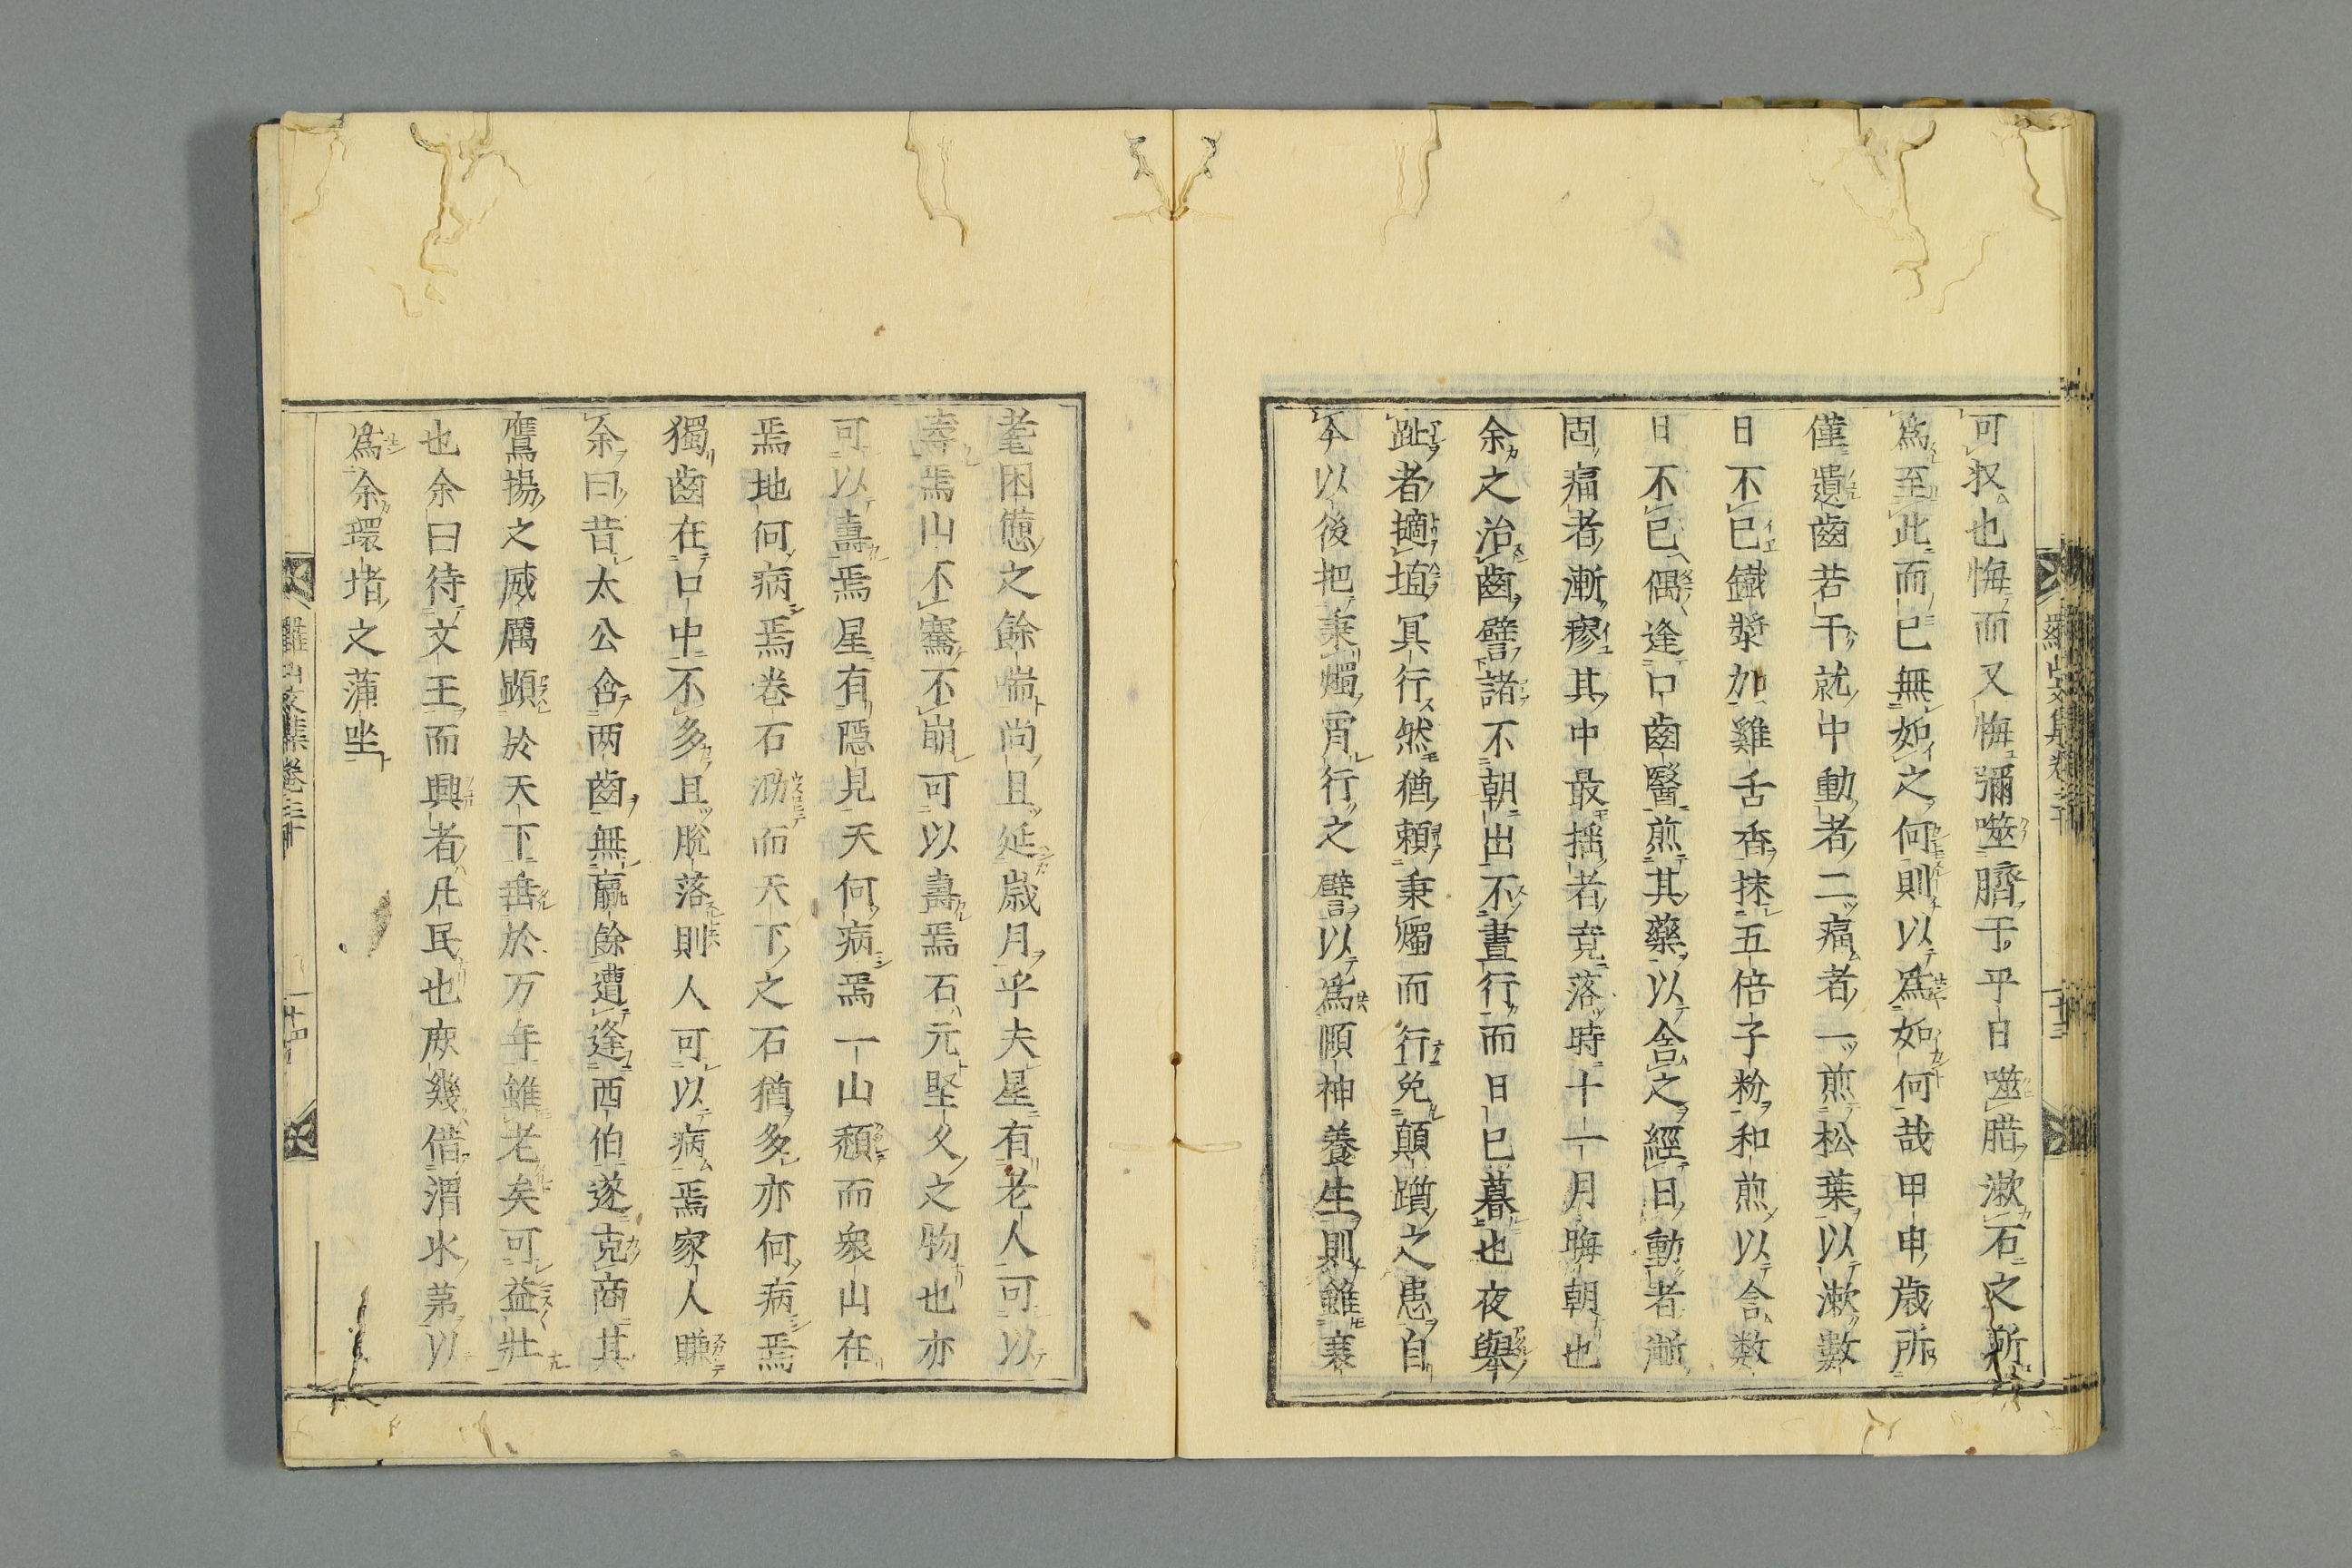 可収也悔而又悔彌噬臍于乎日噬腊漱石之所
爲至此而已無如之何則以爲如何哉甲申歲所
僅遺齒若干就中動者二痛者一煎松葉以漱數
日不已鐵漿加雞舌香抹五倍子粉和煎以含数
日不已偶逢口齒醫煎其藥以含之經日動者漸
固痛者漸瘳其中最揺者竟落時十一月晦朝也
余之治齒譬諸不朝出不晝行而日已暮也夜舉
趾者擿埴冥行然猶頼秉燭而行免顛躓之患自
今以後把秉燭宵行之譬以爲頤神養生則雖衰
耄困憊之餘喘尚且延歲月乎夫星有老人可以
壽焉山不騫不崩可以壽焉石元堅久之物也亦
可以壽焉星有隱見天何病焉一山頽而衆山在
焉地何病焉卷石泐而天下之石猶多亦何病焉
獨齒在口中不多且脫落則人可以病焉家人賺
余曰昔太公含两齒無贏餘遭逢西伯遂克商其
鷹揚之威厲顕於天下垂於万年雖老矣可益壯
也余曰待文王而興者凡民也庶幾借渭水茅以
爲余環堵之蒲坐
羅山文集卷三十
十四